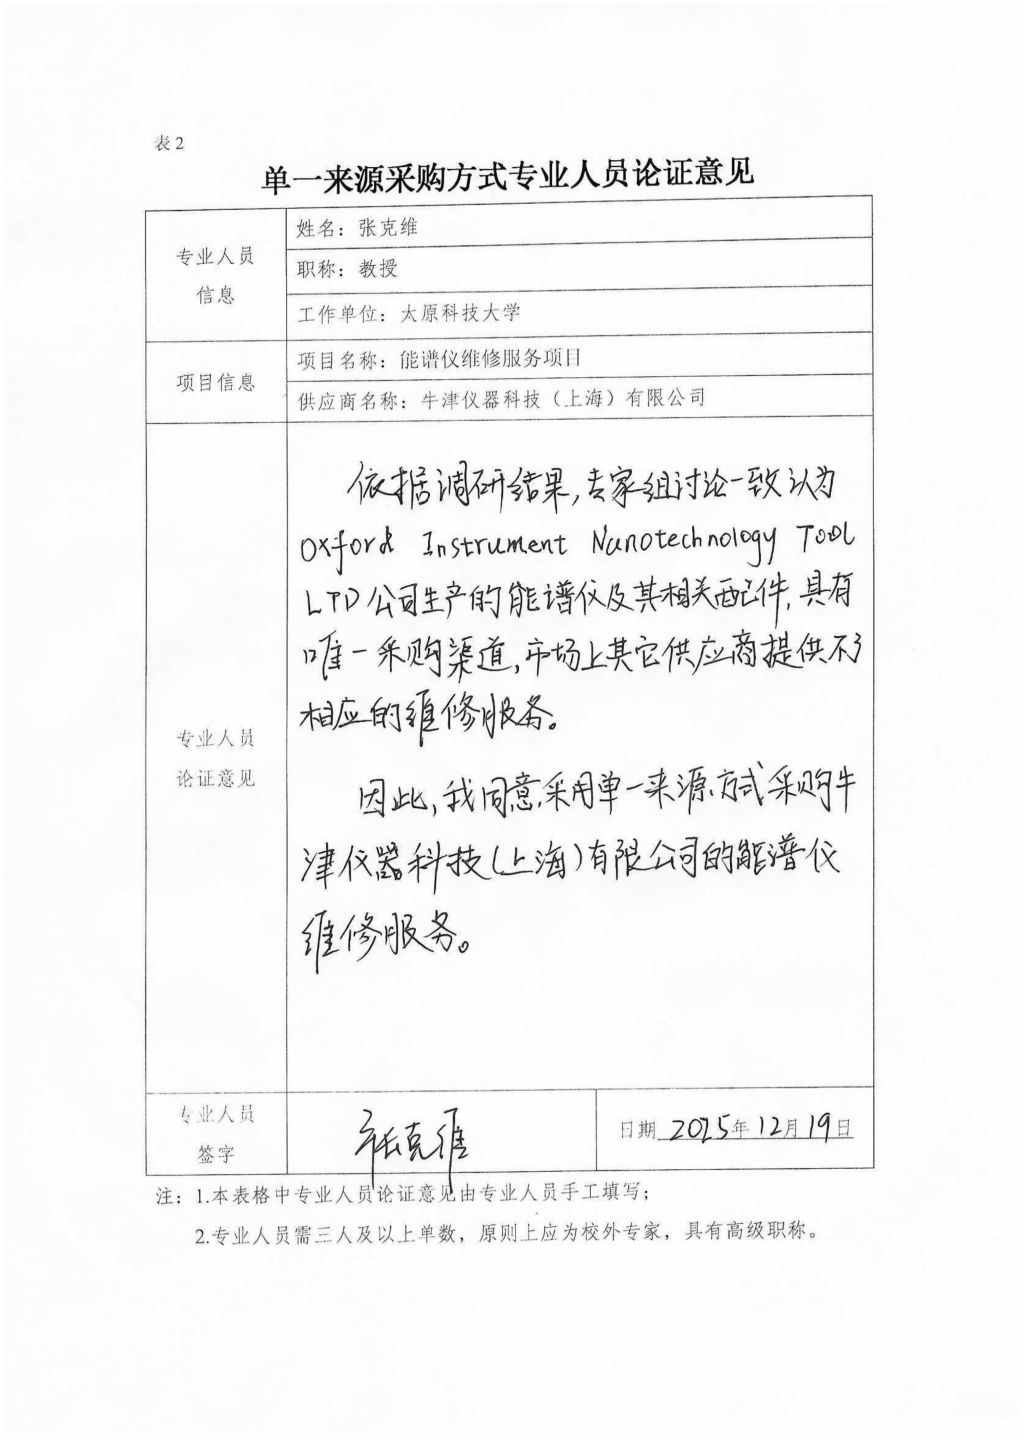 表2
单一来源采购方式专业人员论证意见
专业人员
信息
姓名：张克维
职称：教授
工作单位：太原科技大学
项目信息
项目名称：能谱仪维修服务项目
供应商名称：牛津仪器科技（上海）有限公司
专业人员
论证意见
依据调研结果，专家组讨论一致认为
Oxford Instrument Nanotechnology TOOL
LTD公司生产的能谱仪及其相关配件，具有
唯一采购渠道，市场上其它供应商提供不了
相应的维修服务。
因此，我同意采用单一来源方式采购牛
津仪器科技（上海）有限公司的能谱仪
维修服务。
专业人员
签字
张克维
日期 2025年12月19日
注：1.本表格中专业人员论证意见由专业人员手工填写；
2.专业人员需三人及以上单数，原则上应为校外专家，具有高级职称。